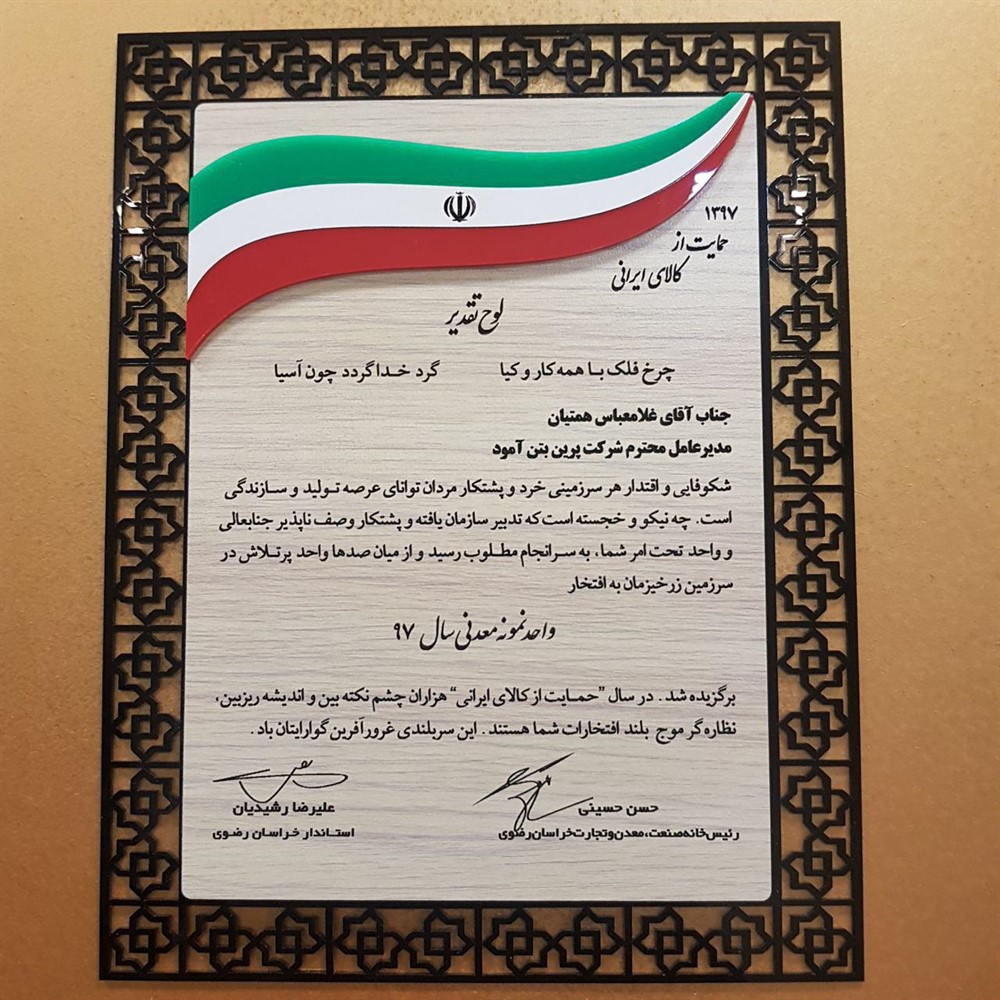 ۱۳۹۷
حمایت از
کالای ایرانی
لوح تقدیر
چرخ فلک با همه کار و کیا گرد خدا گردد چون آسیا
جناب آقای غلامعباس همتیان
مدیرعامل محترم شرکت پرین بتن آمود
شکوفایی و اقتدار هر سرزمینی خرد و پشتکار مردان توانای عرصه تولید و سازندگی
است. چه نیکو و خجسته است که تدبیر سازمان یافته و پشتکار وصف ناپذیر جنابعالی
و واحد تحت امر شما، به سرانجام مطلوب رسید و از میان صدها واحد پرتلاش در
سرزمین زرخیزمان به افتخار
واحد نمونه معدنی سال ۹۷
برگزیده شد. در سال "حمایت از کالای ایرانی" هزاران چشم نکته بین و اندیشه ریزبین،
نظاره گر موج بلند افتخارات شما هستند. این سربلندی غرورآفرین گوارایتان باد.
حسن حسینی
رئیس خانه صنعت، معدن و تجارت خراسان رضوی
علیرضا رشیدیان
استاندار خراسان رضوی